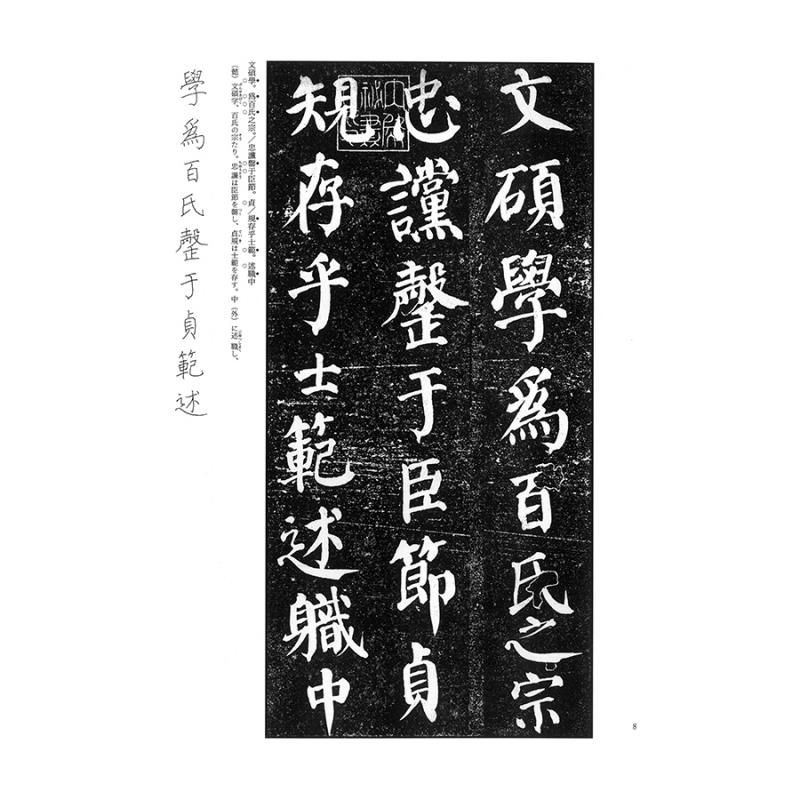 文碩學爲百氏之宗
忠讜罄于臣節貞
規存乎士範述職中
文碩學。爲百氏之宗。／忠讜罄于臣節。貞／規存乎士範。述職中
(懿)文碩学、百氏の宗たり。忠讜は臣節を罄し、貞規は士範を存す。中(外)に述職し、
學爲百氏罄于貞範述
8